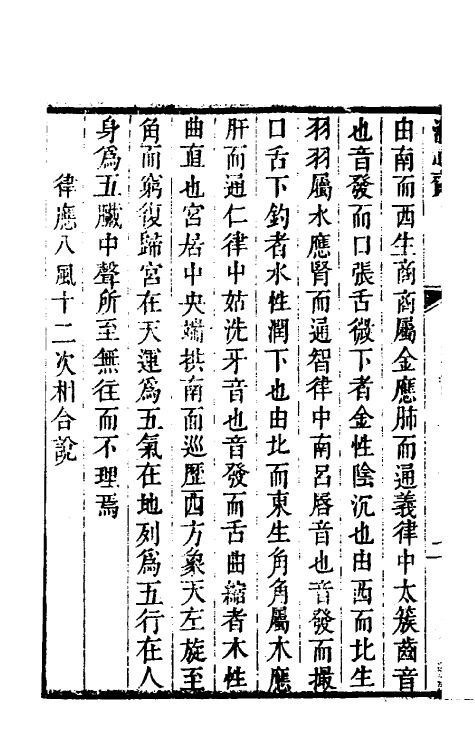 由南而西生商商屬金應肺而通義律中太簇齒音
也音發而口張舌微下者金性陰沉也由西而北生
羽羽屬水應腎而通智律中南呂唇音也音發而撮
口舌下鈞者水性潤下也由北而東生角角屬木應
肝而通仁律中姑洗牙音也音發而舌曲縮者木性
曲直也宮居中央端拱南面巡歷四方象天左旋至
角而窮復歸宮在天運為五氣在地列為五行在人
身為五臟中聲所至無往而不理焉
律應八風十二次相合說